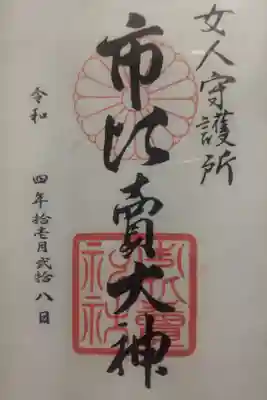 女人守護所
市比賣大神
令和 四年拾壱月弐拾八日